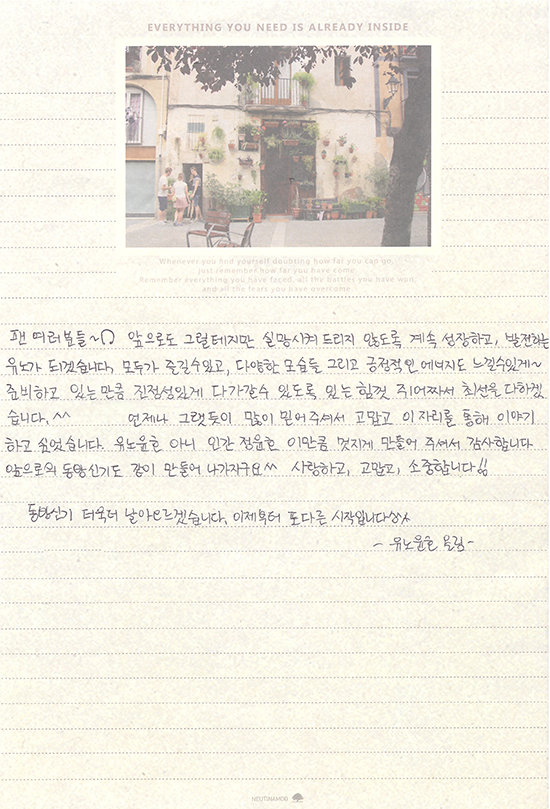 EVERYTHING YOU NEED IS ALREADY INSIDE
Whenever you find yourself doubting how far you can go,
just remember how far you have come.
Remember everything you have faced, all the battles you have won,
and all the fears you have overcome.
팬 여러분들~ 앞으로도 그럴테지만 실망시켜 드리지 않도록 계속 성장하고, 발전하는
유노가 되겠습니다. 모두가 즐길수있고, 다양한 모습들 그리고 긍정적인 에너지도 느낄수있게~
준비하고 있는만큼 진정성있게 다가갈수 있도록 있는 힘껏 쥐어짜서 최선을 다하겠
습니다.^^ 언제나 그랬듯이 많이 믿어주셔서 고맙고 이자리를 통해 이야기
하고 싶었습니다. 유노윤호 아니 인간 정윤호 이만큼 멋지게 만들어 주셔서 감사합니다
앞으로의 동방신기도 같이 만들어 나가자구요^^ 사랑하고, 고맙고, 소중합니다!!
동방신기 더욱더 날아오르겠습니다. 이제부터 또다른 시작입니다
- 유노윤호 올림 -
NEUTINAMOO